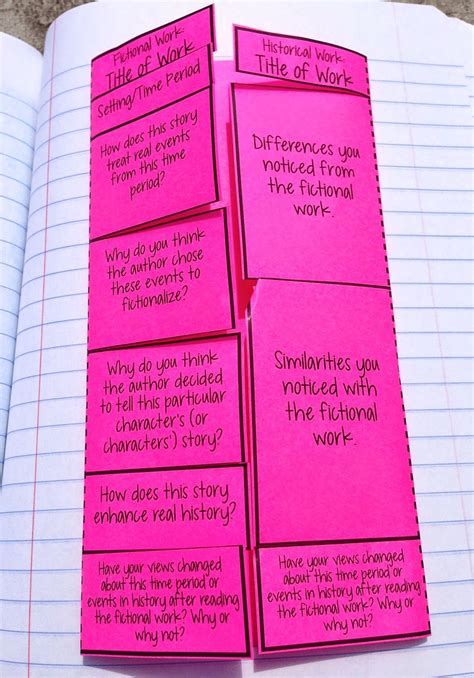 Fictional Work:
Title of Work
Setting/Time Period
How does this story
treat real events
from this time
period?
Why do you think
the author chose
these events to
fictionalize?
Why do you think
the author decided
to tell this
particular
character's (or
characters') story?
How does this story
enhance real history?
Have your views changed
about this time period or
events in history after reading
the fictional work? Why or
why not?
Historical Work:
Title of Work
Differences you
noticed from
the fictional
work.
Similarities you
noticed with
the fictional
work.
Have your views changed
about this time period or
events in history after reading
the fictional work? Why or
why not?